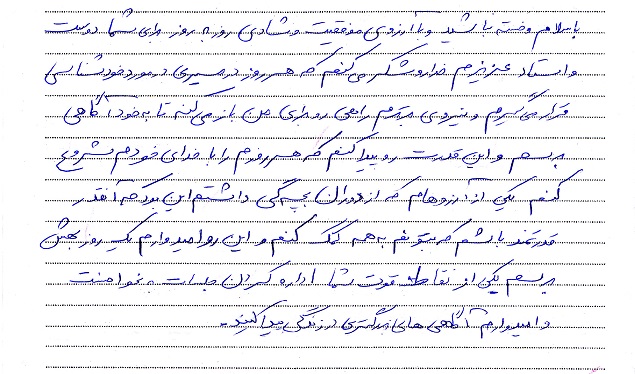 با سلام و خسته نباشید و با آرزوی موفقیت و شادی روز به روز برای شما دوست
و استاد عزیزم خدا رو شکر می‌کنم که هر روز در مسیری در مورد خودشناسی
قرار می‌گیرم و نیروی برترم راهی رو برای من باز می‌کنه تا به خود آگاهی
برسم و این قدرت رو پیدا کنم که هر روزم را با خدای خودم شروع
کنم یکی از آرزوهام که از دوران بچگی داشتم این بود که آنقدر
قدرتمند باشم که بتونم به همه کمک کنم و این رو امیدوارم یک روز بهش
برسم یکی از نقاط قوت شما اداره کردن جلسات به نحو احسنت
و امیدوارم آگاهی های بیشتری در زندگی پیدا کنید.